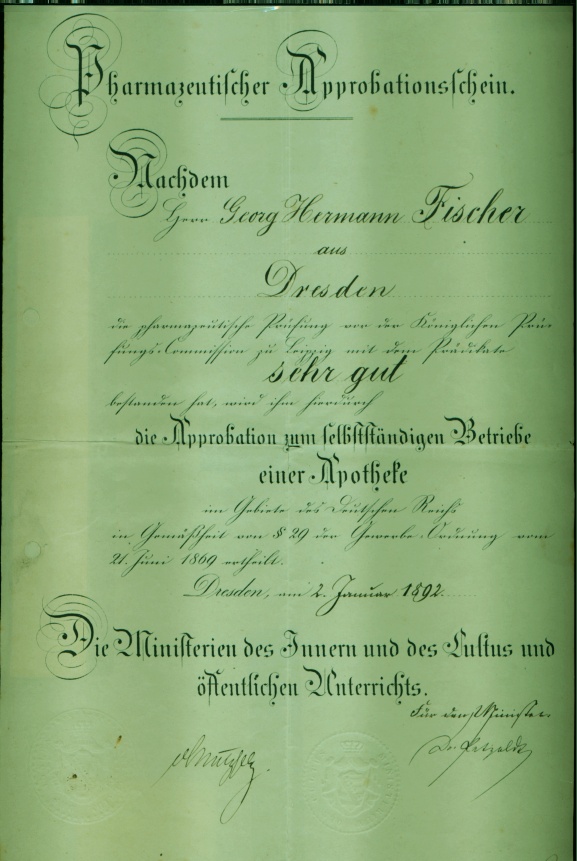 Pharmazeutischer Approbationsschein.
Nachdem
Herr Georg Hermann Fischer
aus
Dresden
die pharmazeutische Prüfung vor der Königlichen Prü-
fungs-Commission zu Leipzig mit dem Prädikate
sehr gut
bestanden hat, wird ihm hierdurch
die Approbation zum selbstständigen Betriebe
einer Apotheke
im Gebiete des Deutschen Reichs
in Gemäßheit von § 29 der Gewerbe-Ordnung vom
21. Juni 1869 ertheilt.
Dresden, am 2. Januar 1892.
Die Ministerien des Innern und des Cultus und
öffentlichen Unterrichts.
Für den Minister
Dr. Petzoldt